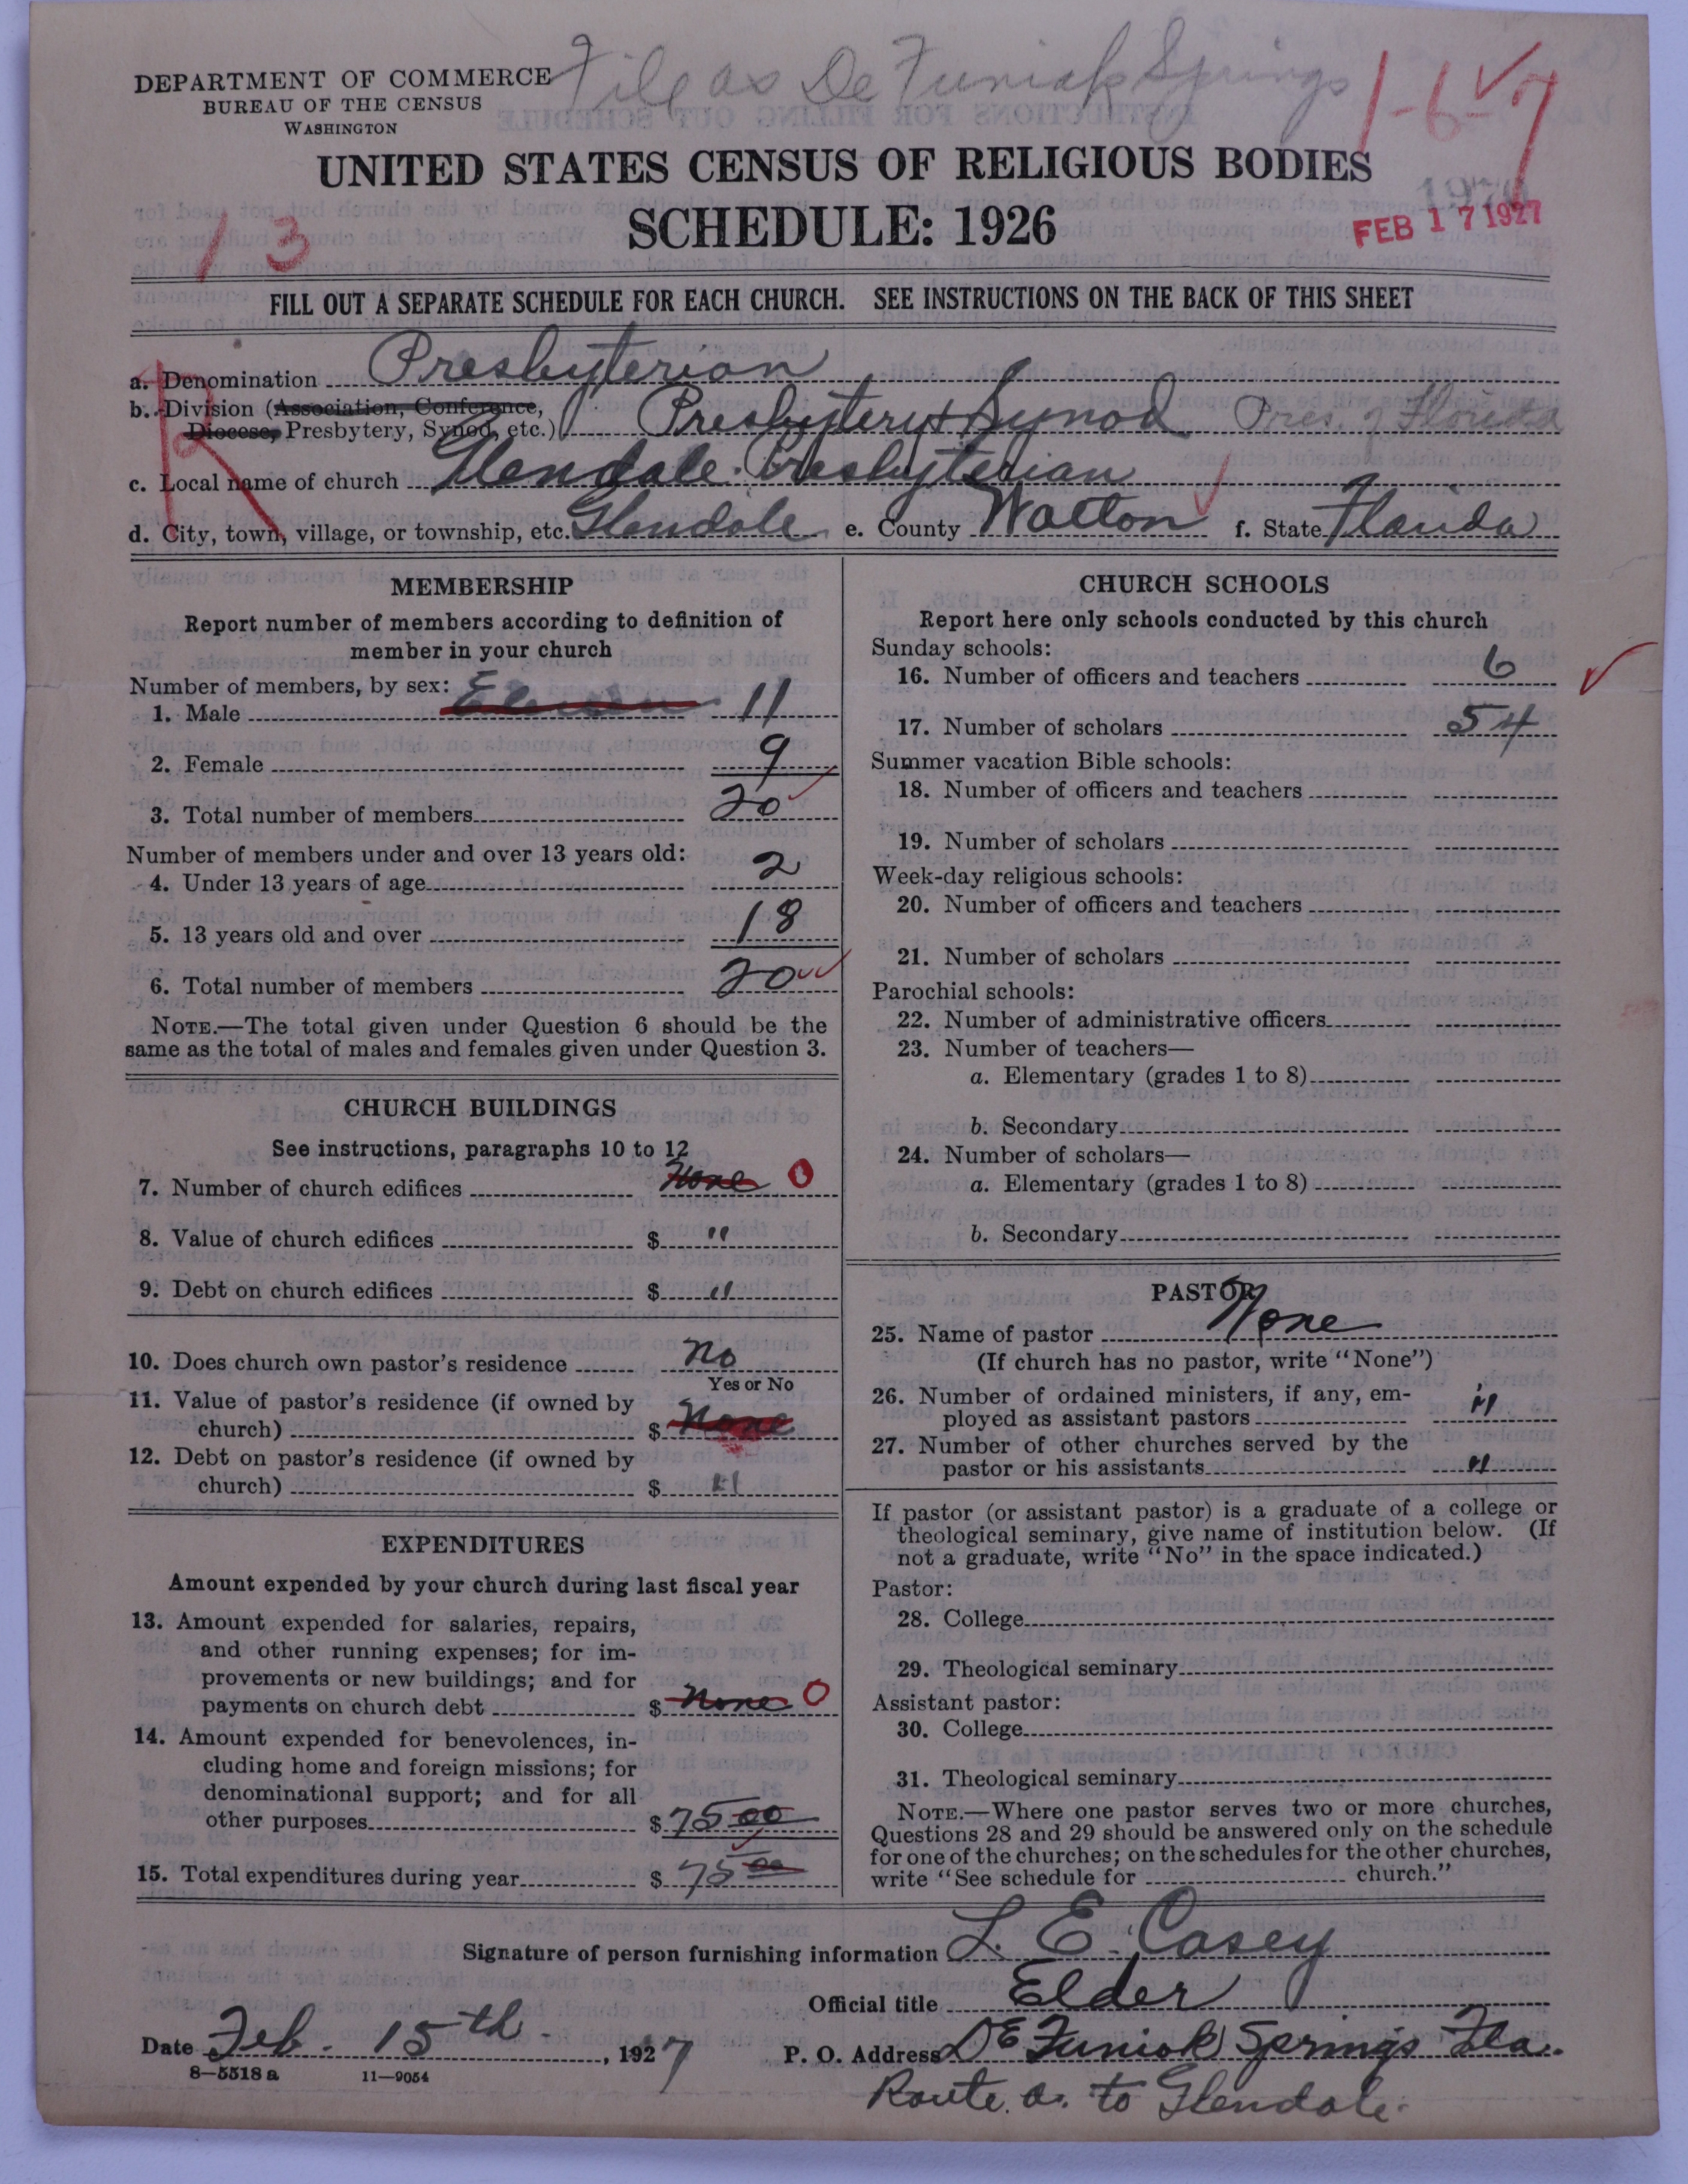 File as De Funiak Springs
1-6-7
DEPARTMENT OF COMMERCE
BUREAU OF THE CENSUS
WASHINGTON
UNITED STATES CENSUS OF RELIGIOUS BODIES
SCHEDULE: 1926
13
FEB 17 1927
FILL OUT A SEPARATE SCHEDULE FOR EACH CHURCH. SEE INSTRUCTIONS ON THE BACK OF THIS SHEET
R
a. Denomination Presbyterian
b. Division (Association, Conference,
Diocese, Presbytery, Synod, etc.) Presbytery & Synod Pres. of Florida
c. Local name of church Glendale Presbyterian
d. City, town, village, or township, etc. Glendale e. County Walton f. State Florida
MEMBERSHIP
Report number of members according to definition of
member in your church
Number of members, by sex:
1. Male Eleven 11
2. Female 9
3. Total number of members 20
Number of members under and over 13 years old:
4. Under 13 years of age 2
5. 13 years old and over 18
6. Total number of members 20
NOTE.—The total given under Question 6 should be the
same as the total of males and females given under Question 3.
CHURCH BUILDINGS
See instructions, paragraphs 10 to 12
7. Number of church edifices None 0
8. Value of church edifices $ "
9. Debt on church edifices $ "
10. Does church own pastor's residence No
Yes or No
11. Value of pastor's residence (if owned by
church) $ None
12. Debt on pastor's residence (if owned by
church) $ "
EXPENDITURES
Amount expended by your church during last fiscal year
13. Amount expended for salaries, repairs,
and other running expenses; for im-
provements or new buildings; and for
payments on church debt $ None 0
14. Amount expended for benevolences, in-
cluding home and foreign missions; for
denominational support; and for all
other purposes $ 75 00
15. Total expenditures during year $ 75 00
CHURCH SCHOOLS
Report here only schools conducted by this church
Sunday schools:
16. Number of officers and teachers 6
17. Number of scholars 54
Summer vacation Bible schools:
18. Number of officers and teachers
19. Number of scholars
Week-day religious schools:
20. Number of officers and teachers
21. Number of scholars
Parochial schools:
22. Number of administrative officers
23. Number of teachers—
a. Elementary (grades 1 to 8)
b. Secondary
24. Number of scholars—
a. Elementary (grades 1 to 8)
b. Secondary
PASTOR
25. Name of pastor None
(If church has no pastor, write "None")
26. Number of ordained ministers, if any, em-
ployed as assistant pastors "
27. Number of other churches served by the
pastor or his assistants "
If pastor (or assistant pastor) is a graduate of a college or
theological seminary, give name of institution below. (If
not a graduate, write "No" in the space indicated.)
Pastor:
28. College
29. Theological seminary
Assistant pastor:
30. College
31. Theological seminary
NOTE.—Where one pastor serves two or more churches,
Questions 28 and 29 should be answered only on the schedule
for one of the churches; on the schedules for the other churches,
write "See schedule for church."
Signature of person furnishing information L. E. Casey
Official title Elder
Date Feb. 15th. , 1927 P. O. Address De Funiak Springs Fla.
8—5518 a 11—9054
Route a. to Glendale.